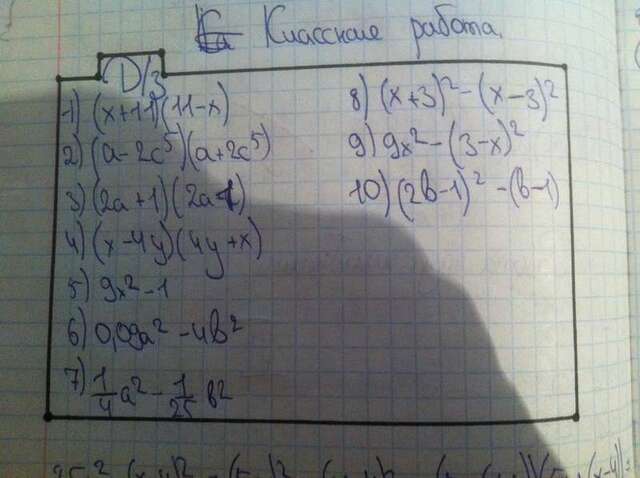 Классная работа.
D/з
1) (x+11)(11-x)
2) (a-2c⁵)(a+2c⁵)
3) (2a+1)(2a-1)
4) (x-4y)(4y+x)
5) 9x²-1
6) 0,09a²-4b²
7) 1/4 a² - 1/25 b²
8) (x+3)²-(x-3)²
9) 9x²-(3-x)²
10) (2b-1)²-(b-1)